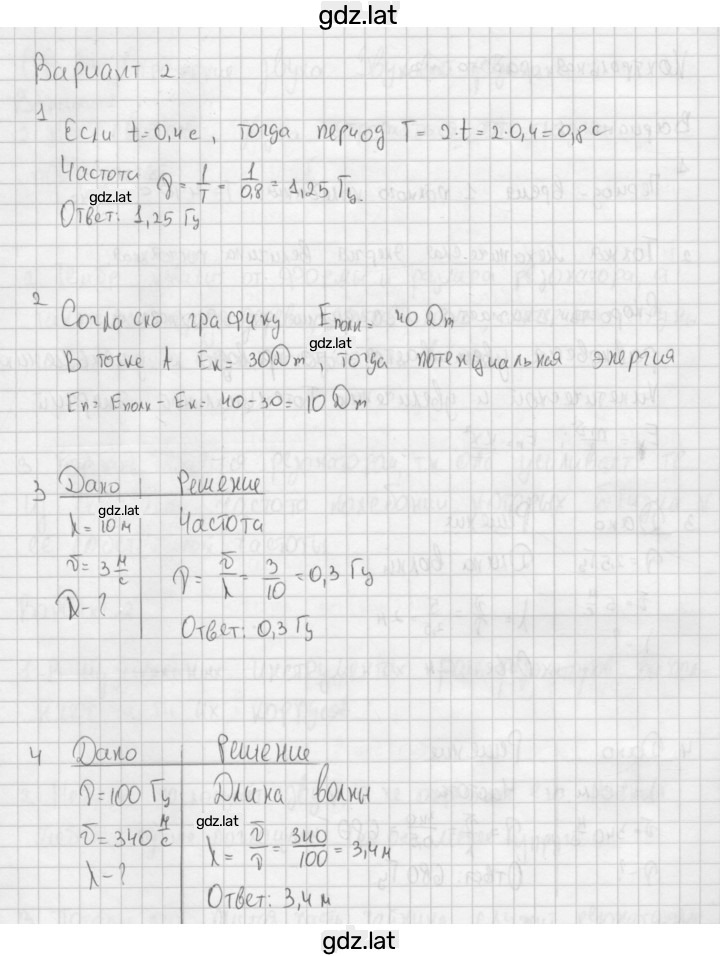 gdz.lat
Вариант 2
1
Если t=0,4с, тогда период T= 2·t=2·0,4=0,8с
Частота ν = 1/T = 1/0,8 = 1,25 Гц.
gdz.lat
Ответ: 1,25 Гц
2
Согласно графику Eполн= 40 Дж
gdz.lat
В точке А Eк= 30Дж, тогда потенциальная энергия
Eп= Eполн - Eк= 40-30= 10 Дж
3 Дано Решение
gdz.lat
λ= 10м Частота
v= 3 м/с ν = v/λ = 3/10 = 0,3 Гц
ν-?
Ответ: 0,3 Гц
4 Дано Решение
ν=100 Гц Длина волны
gdz.lat
v=340 м/с λ = v/ν = 340/100 = 3,4м
λ-?
Ответ: 3,4 м
gdz.lat